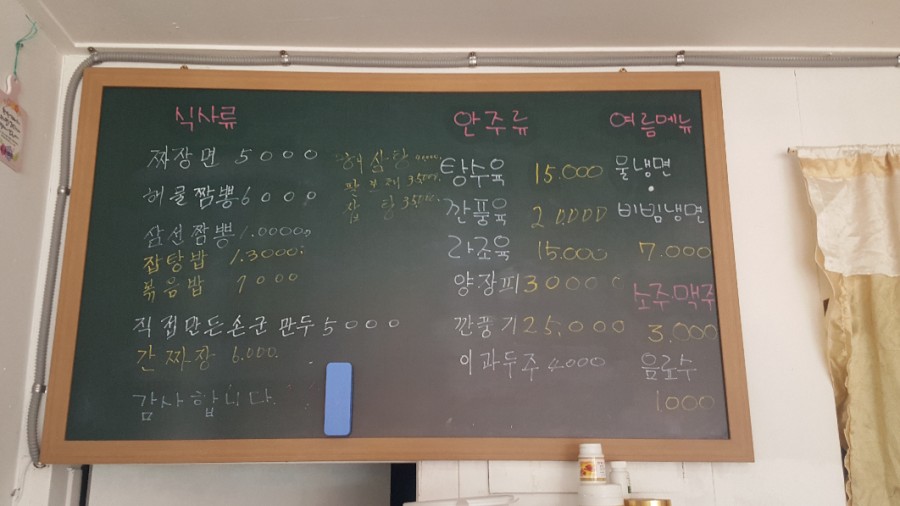 식사류
짜장면 5000
해물짬뽕 6000
삼선짬뽕 1.0000
잡탕밥 1.3000
볶음밥 7000
직접만든손군만두 5000
간짜장 6.000.
감사합니다.
안주류
탕수육 15.000
깐풍육 20000
라조육 15.000
양장피 30000
깐풍기 25,000
이과두주 4.000
여름메뉴
물냉면
비빔냉면
7.000
소주.맥주
3.000
음료수
1000